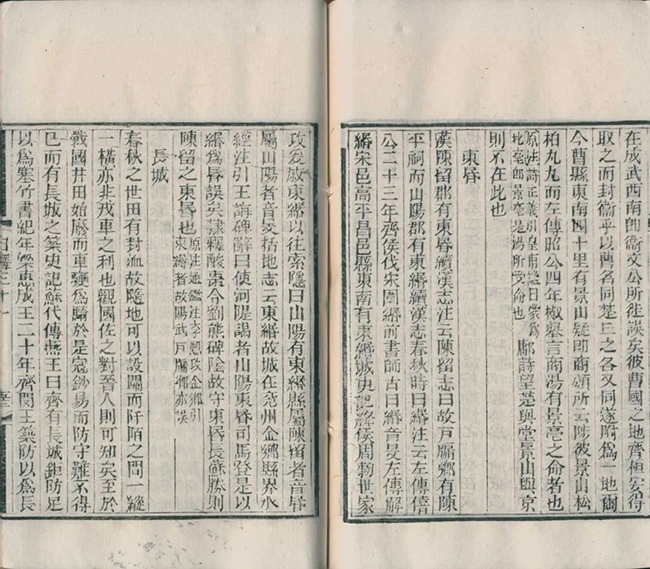 在成武西南卽衞文公所徙誤矣彼曹國之地齊桓安得
取之而封衞乎以名同楚丘之各又同遂附爲一地爾
今曹縣東南四十里有景山疑卽商頌所云陟彼景山松
柏丸丸而左傳昭公四年椒舉言商湯有景亳之命者也
原注詩正義引皇甫謐曰蒙爲北亳卽景亳是湯所受命也鄘詩望楚與堂景山與京
則不在此也
東昏
漢陳留郡有東昏續漢志注云陳留志曰故戸牖鄉有陳
平祠而山陽郡有東緡續漢志春秋時曰緡注云左傳僖
公二十三年齊侯伐宋圍緡前書師古曰緡音旻左傳解
緡宋邑高平昌邑縣東南有東緡城史記絳侯周勃世家
攻爰戚東緡以往索隱曰山陽有東緡縣屬陳留者音昏
屬山陽者音旻括地志云東緡故城在兗州金鄉縣界水
經注引王誨碑辭曰使河隄謁者山陽東昏司馬登是以
緡爲昏誤矣隸釋酸棗令劉熊碑陰故守東昏長蘇勝則
陳留之東昏也原注通鑑注李愬攻金鄉引東緡者故陽武戸牖鄉亦誤
長城
春秋之世田有封洫故隨地可以設關而阡陌之閒一縱
一橫亦非戎車之利也觀國佐之對晉人則可知矣至於
戰國井田始廢而車變爲騎於是寇鈔易而防守難不得
已而有長城之築史記蘇代傳燕王曰齊有長城鉅防足
以爲塞竹書紀年梁惠成王二十年齊閔王築防以爲長